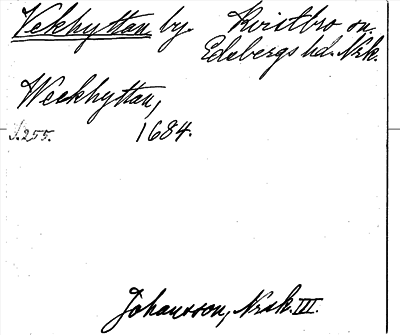 Vekhyttan by. Kvistbro sn.
Edsbergs hd. Nrk.
Weekhyttan,
S. 255. 1684.
Johansson, Nrsk. III.